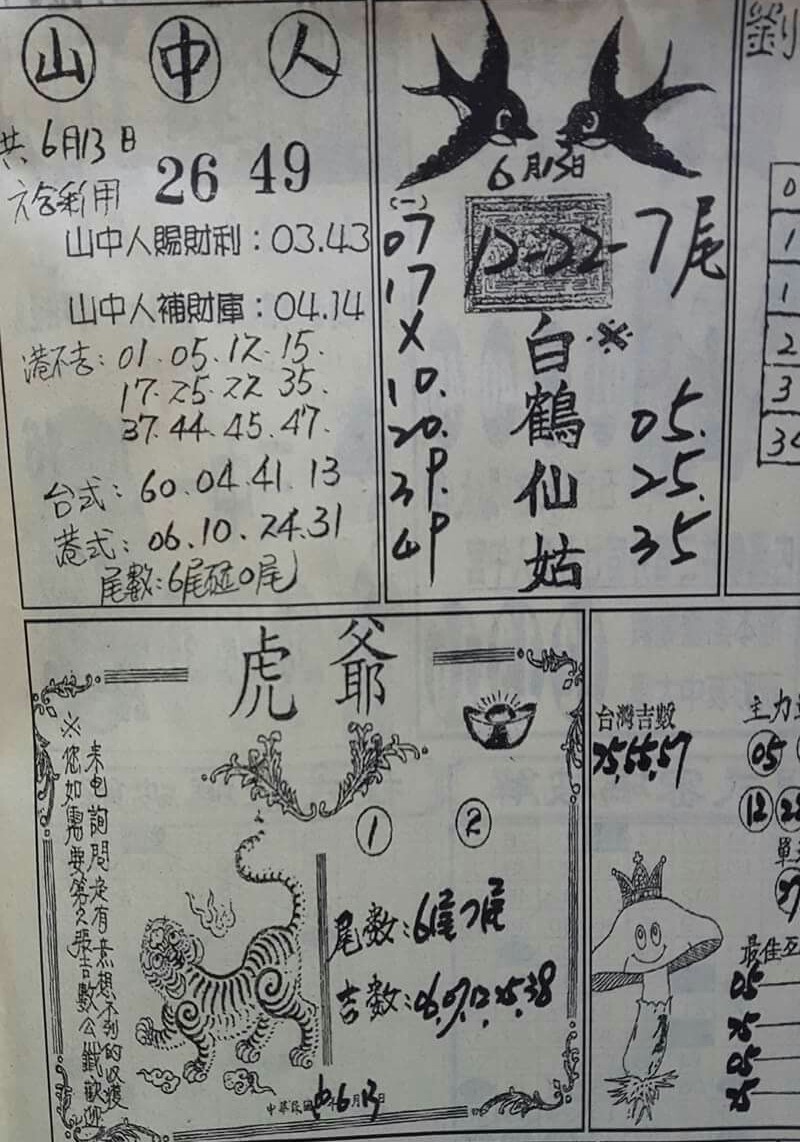 山 中 人
共6月13日
六合彩用
26 49
山中人賜財利：03.43
山中人補財庫：04.14
港不吉：01.05.12.15.
17.25.22.35.
37.44.45.47.
台式：60.04.41.13
港式：06.10.24.31
尾數：6尾延0尾
6月13日
(一)
12-22-7尾
07
17
X
10.
20.
39.
49
白鶴仙姑
※
05.
25.
35
劉
0
1
1
2
3
34
虎爺
※您如需要第2張吉數公鐵歡迎
來电詢問定有意想不到的收獲
1 2
尾数：6尾7尾
吉数：06.07.12.25.38
中華民國 年6月13日
台灣吉数
25.55.57
主力
05
12 22
單
27
最佳互
05
25
05
25